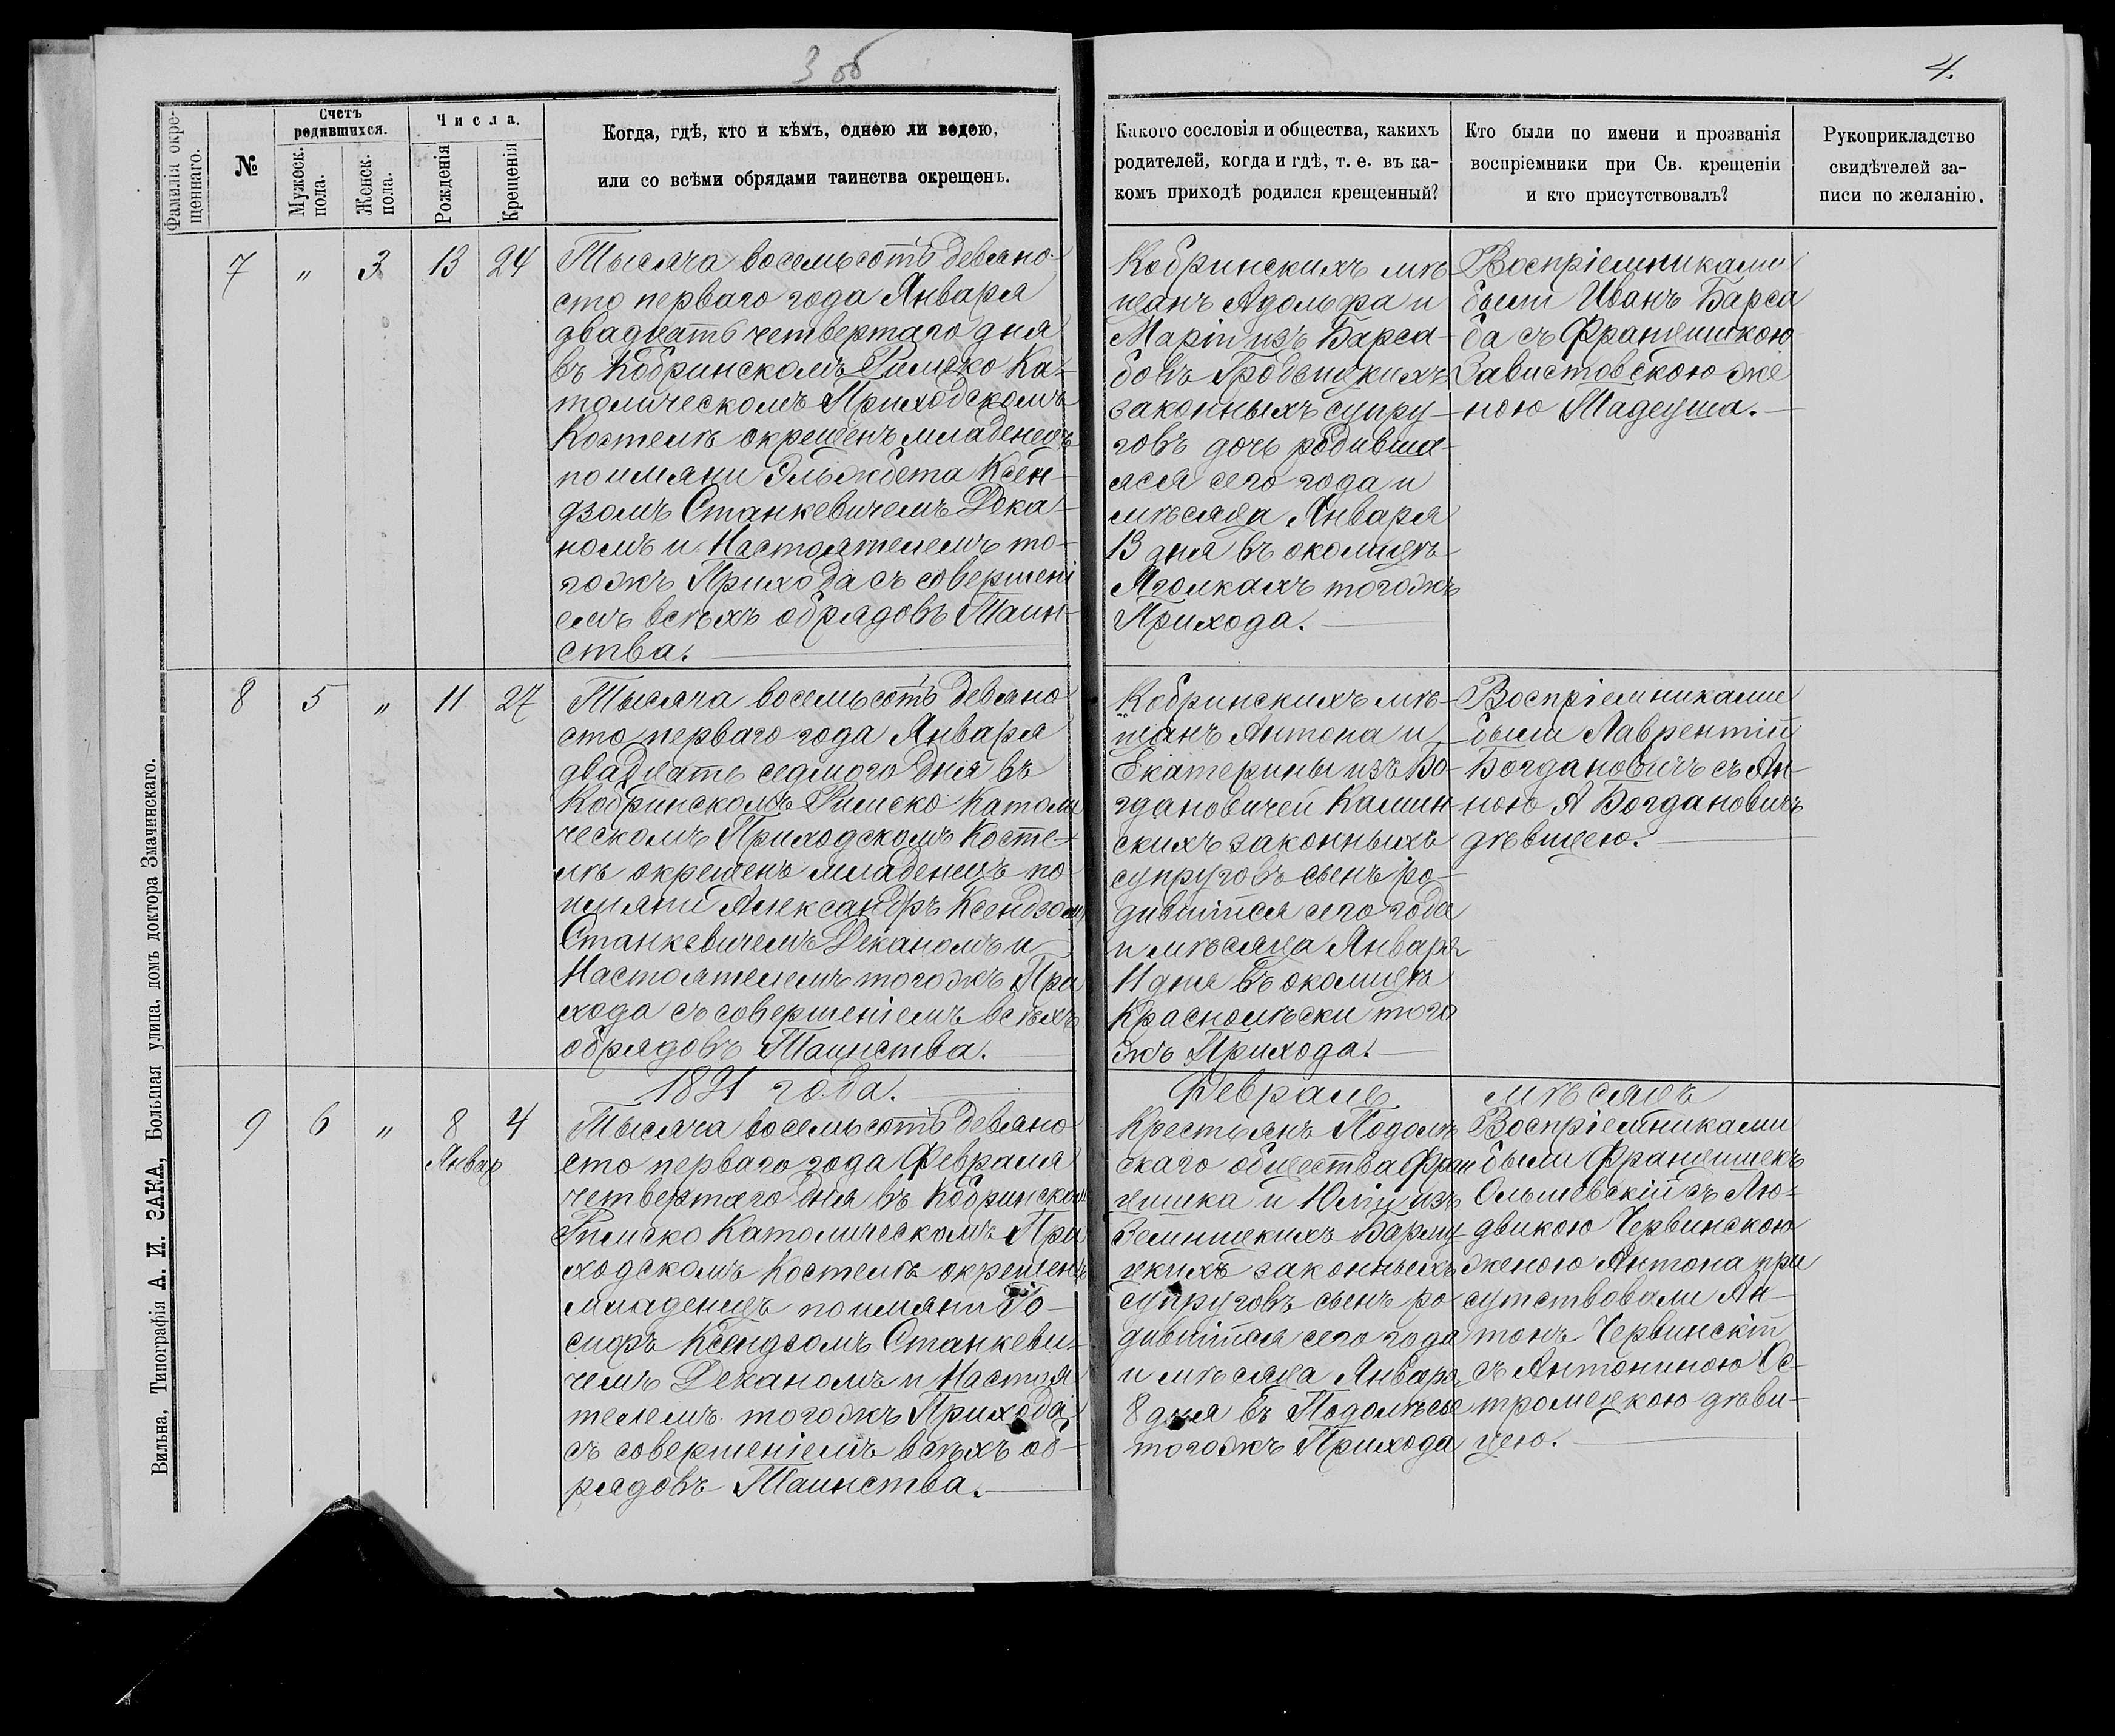 3 об
4.
Фамилія окре-
щеннаго.
№
Счетъ
родившихся.
Мужеск.
пола.
Женск.
пола.
Числа.
Рожденія
Крещенія
Когда, гдѣ, кто и кѣмъ, одною ли водою,
или со всѣми обрядами таинства окрещенъ.
Какого сословія и общества, какихъ
родителей, когда и гдѣ, т. е. въ ка-
комъ приходѣ родился крещенный?
Кто были по имени и прозванія
воспріемники при Св. крещеніи
и кто присутствовалъ?
Рукоприкладство
свидѣтелей за-
писи по желанію.
7 „ 3 13 24
Тысяча восемьсотъ девяно-
сто перваго года Января
двадцать четвертаго дня
въ Кобринскомъ Римско Ка-
толическомъ Приходскомъ
Костелѣ окрещенъ младенецъ
по имяни Эльжбета Ксен-
дзомъ Станкевичемъ Дека-
номъ и Настоятелемъ то-
гожъ Прихода съ совершені
емъ всѣхъ обрядовъ Таин-
ства.
Кобринскихъ мѣ-
щанъ Адольфа и
Маріи изъ Барса-
бовъ
законныхъ супру-
говъ дочь родивша-
яся сего года и
мѣсяца Января
13 дня въ околицѣ
Яголкахъ тогожъ
Прихода.
Воспріемниками
были Иванъ Барса
ба съ Францишкою
Завистовскою же
ною Тадеуша.
8 5 „ 11 27
Тысяча восемьсотъ девяно
сто перваго года Января
двадцать седмого дня въ
Кобринскомъ Римско Католи
ческомъ Приходскомъ Косте-
лѣ окрещенъ младенецъ по
имяни Александръ Ксендзомъ
Станкевичемъ Деканомъ и
Настоятелемъ тогожъ При
хода съ совершеніемъ всѣхъ
обрядовъ Таинства.
Кобринскихъ мѣ-
щанъ Антона и
Екатерины изъ Бо-
гдановичей Камин
скихъ законныхъ
супруговъ сынъ ро-
дившійся сего года
и мѣсяца Января
11 дня въ околицѣ
Краснолѣски того
жъ Прихода.
Воспріемниками
были Лаврентій
Богдановичъ съ Ан-
ною А Богдановичъ
дѣвицею.
1891 года.
Февраль мѣсяцъ
9 6 „ 8 4
Январ
Тысяча восемьсотъ девяно
сто перваго года Февраля
четвертаго дня въ Кобринском
Римско Католическомъ При
ходскомъ Костелѣ окрещенъ
младенецъ по имяни Іо-
сифъ Ксендзомъ Станкеви-
чемъ Деканомъ и Настоя
телемъ тогожъ Прихода
съ совершеніемъ всѣхъ об-
рядовъ Таинства.
Крестьянъ Подолѣ
скаго общества Фран
цишка и Юліи изъ
законныхъ
супруговъ сынъ ро
дившійся сего года
и мѣсяца Января
8 дня въ Подолѣсье
тогожъ Прихода
Воспріемниками
были Францишекъ
Ольшевскій съ Лю-
двикою Червинскою
женою Антона при
сутствовали Ан-
тонъ Червинскій
съ Антониною Ос-
тромецкою дѣви-
цею.
Вильна, Типографія А. И. ЗАКА, Большая улица, домъ доктора Змачинскаго.